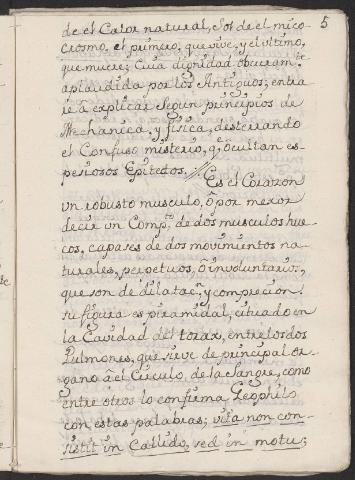 5
de el Calor natural, Sol de el micro
cosmo, el primero, que vive, y el ultimo,
que muere; Cuia dignidad obscuram.te
aplaudida por los Antiguos; entra
ré a explicar segun principios de
Mechanica, y fisica, desterrando
el Confuso misterio, q.e ocultan es-
peciosos Epitectos. // Es el Corazon
un robusto musculo, ô por mexor
decir un Comp.to de dos musculos hue
cos, capases de dos movimientos na-
turales, perpetuos, ô involuntarios;
que son de dilatac.n, y compreción:
su figura es piramidal, cituado en
la Cavidad del torax, entre los dos
Pulmones, que sirve de principal or-
gano â el Circulo de la sangre, como
entre otros lo confirma Geophilo
con estas palabras; vita non con-
sistit in Callido, sed in motu;